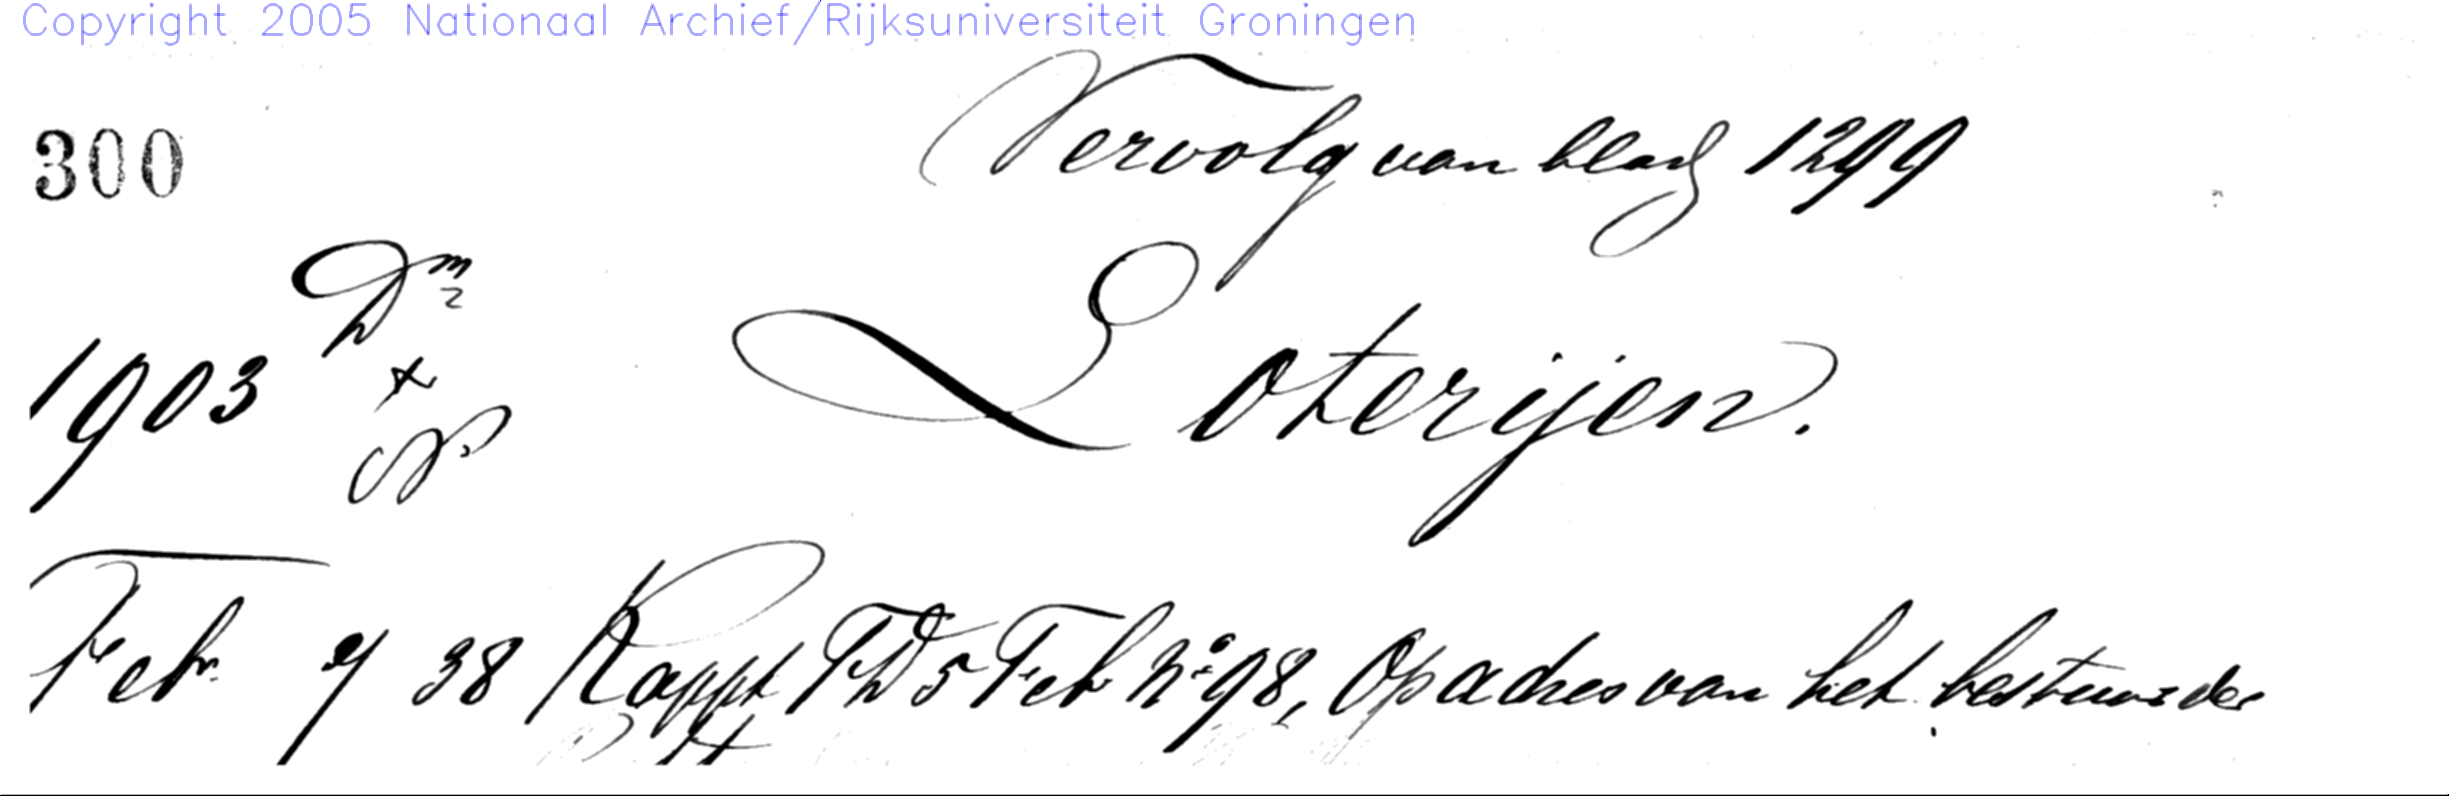 Copyright 2005 Nationaal Archief/Rijksuniversiteit Groningen
300
Vervolg van bladz 1299
Dm
1903
Loterijen.
Febr. 9 38 Rappt FD 5 Feb No 98, Op adres van het bestuur der